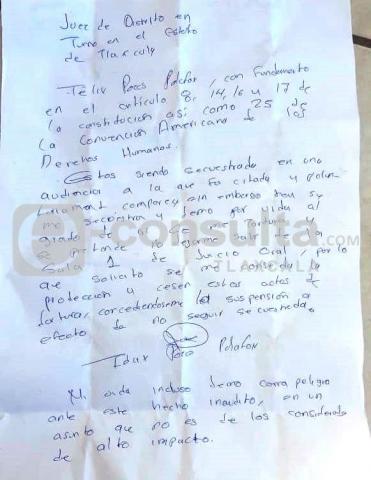 Juez de Distrito en
Turno en el Estado
de Tlaxcala
Félix Pocs , con fundamento
en el artículo 8, 14, 16 y 17 de
la constitución así como 25 de
la Convención Americana de los
Derechos Humanos.
Estoy siendo secuestrado en una
audiencia a la que fui citado y
comparecí sin embargo
me secuestra y temo por vida al
grado de
no dejarme salir de la
Sala 1 de Juicio Oral, por lo
que solicito se me conceda la
protección y cesen estos actos de
tortura, concediendoseme la suspensión a
efecto de no seguir secuestrado.
e-consulta.com
TLAXCALA
Mi vida incluso temo corra peligro
ante este hecho inaudito, en un
asunto que no es de los considerado
de alto impacto.